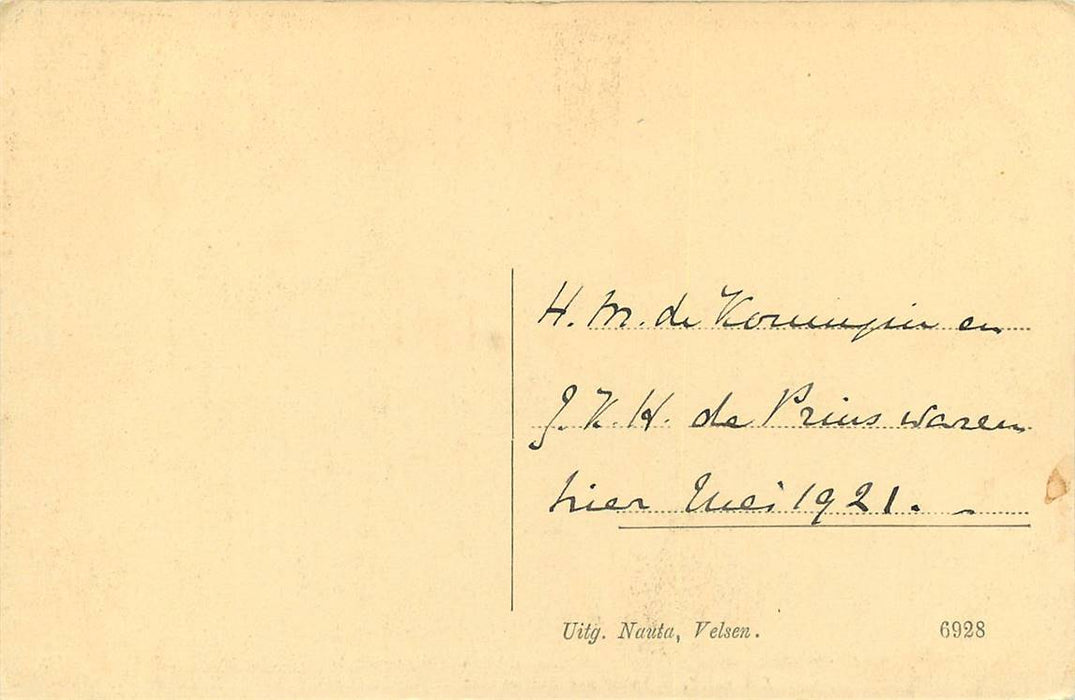 H. M. de Koningin en
J. K. H. de Prins waren
hier Mei 1921. -
Uitg. Nauta, Velsen. 6928